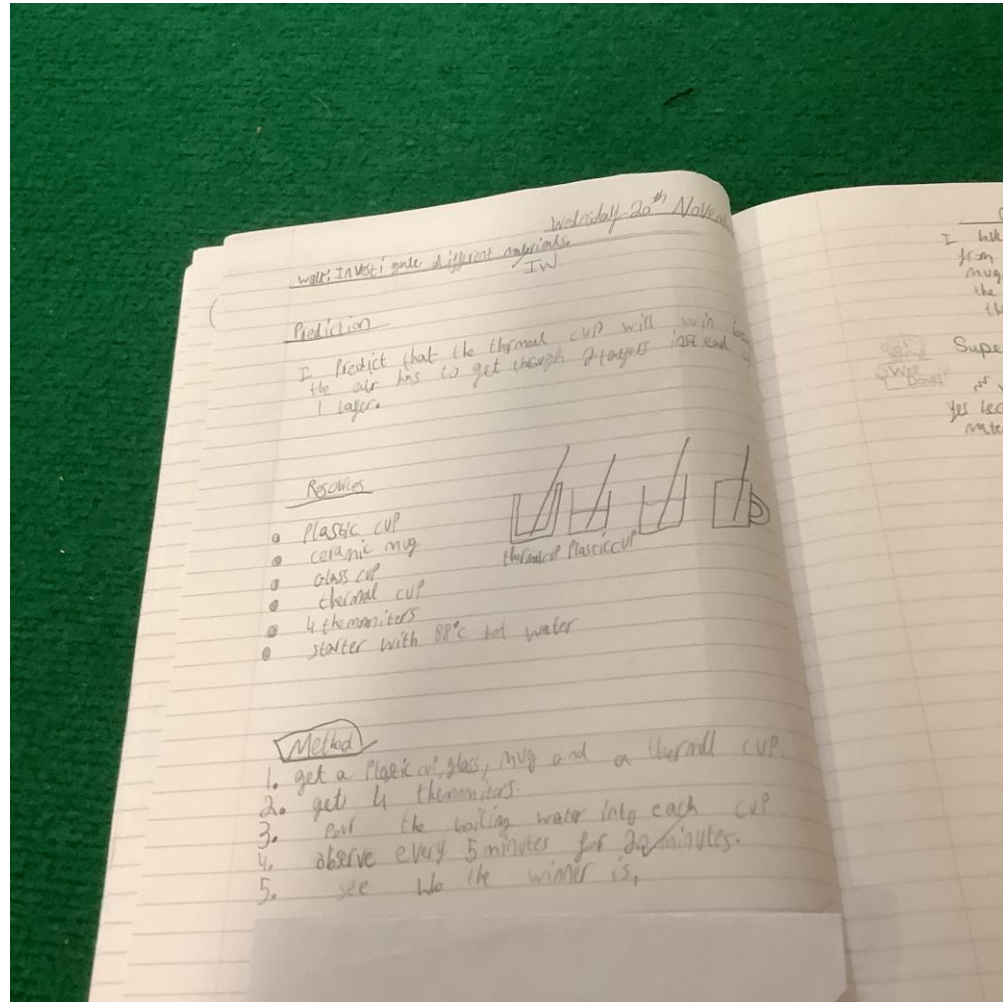 Wednsday 20th Novem
Walt: Investigate different materials.
IW
Prediction
I Predict that the thermal cup will win
the air has to get through 2 layers instead
1 layer.
Resources
Plastic cup
ceramic mug
Glass cup
thermal cup
4 themomiters
starter with 88°c hot water
thermal Plastic cup
Method
1. get a Plastic cup, glass, mug and a thermall cup.
2. get 4 themomitors.
3. Pour the boiling water into each cup
4. observe every 5 minutes for minutes.
5. see the winner is,
I
from
mug
the
Supe
Well
Done!
Yes
mate